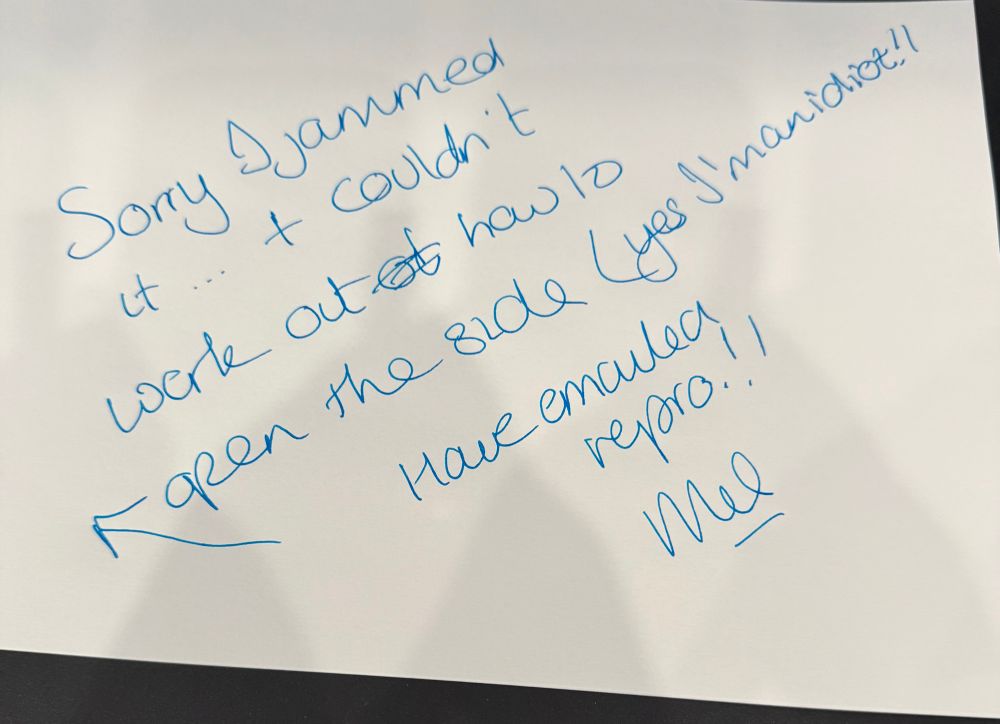 Sorry I jammed
it... + couldn't
work out how to
open the side (yes I'm an idiot!!
Have emailed
repro..!!
Mel